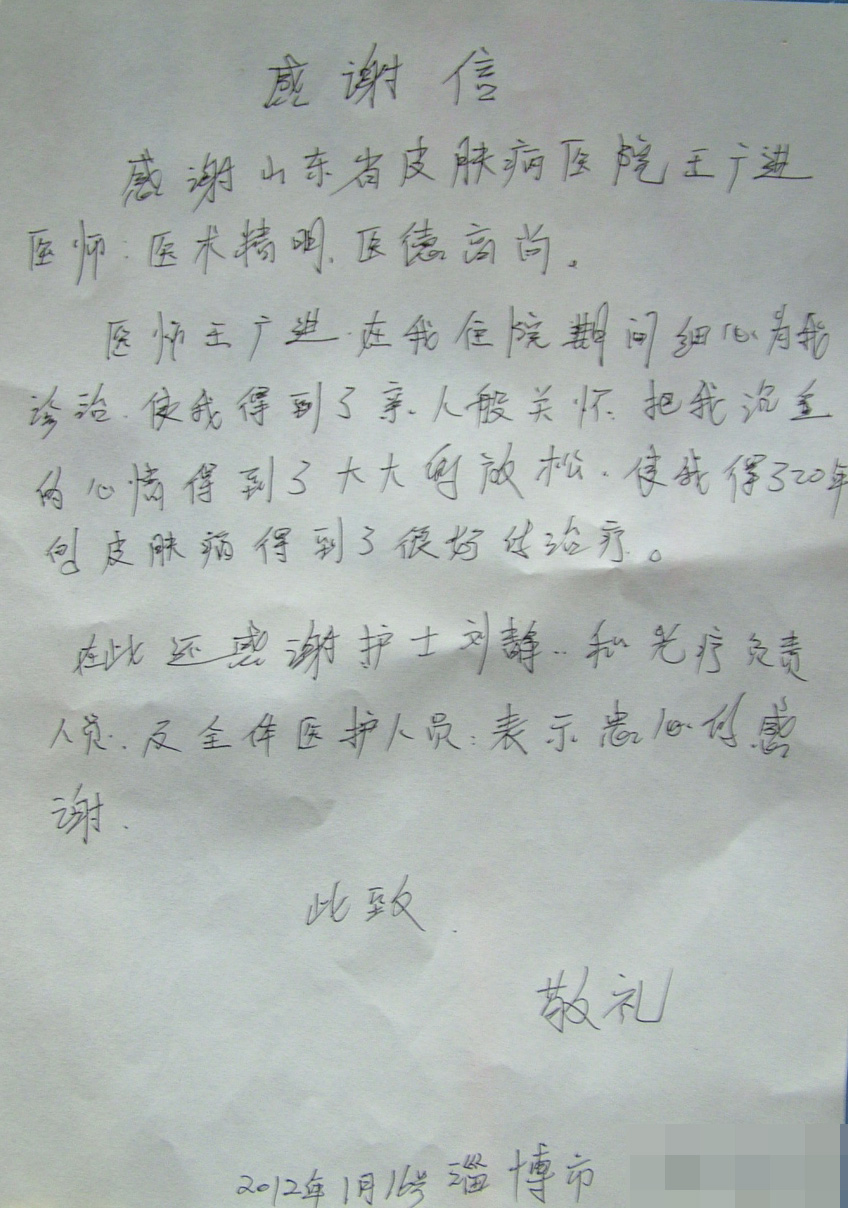 感谢信
感谢山东省皮肤病医院王广进
医师:医术精明、医德高尚。
医师王广进.在我住院期间细心为我
诊治.使我得到了亲人般关怀.把我沉重
的心情得到了大大的放松.使我得了20年
的皮肤病得到了很好的治疗。
在此还感谢护士刘静..和光疗负责
人员.及全体医护人员:表示忠心的感
谢.
此致.
敬礼
2012年1月16号 淄博市